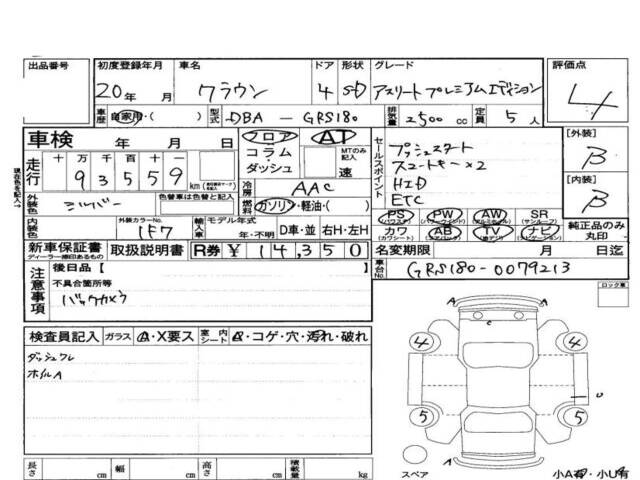 出品番号 初度登録年月 車名 ドア 形状 グレード 評価点
20年 月 クラウン 4 SD アスリートプレミアムエディション 4
車歴 自家用・( ) 型式 DBA - GRS180 排気量 2500 cc 定員 5 人
車検 年 月 日 フロア AT セールスポイント プッシュスタート [外装]
走行 十 万 千 百 十 一 コラム MTのみ記入 スマートキー×2 B
93559 km ダッシュ 速 HID [内装]
冷房 AAC ETC B
外装色 シルバー 色替車は色替と記入 燃料 ガソリン・軽油・( ) PS PW AW SR
内装色 外装カラーNo. 1F7 輸入車 モデル年式 年・不明 D車・並 右H・左H カワ AB TV ナビ 純正品のみ丸印
新車保証書 取扱説明書 R券 ¥ 14,350 名変期限 月 日迄
ディーラー捺印あるもの
注意事項 後日品 [ ] 車台No. GRS180-0079213
不具合箇所等
バックカメラ
ロック車
検査員記入 ガラス A・X要ス 室内シート A・コゲ・穴・汚れ・破れ
ダッシュワレ
ホイルA
A A
C
4 4
U
5 5
A A
スペア
長さ cm 幅 cm 高さ cm 積載量 kg
小A有・小U有